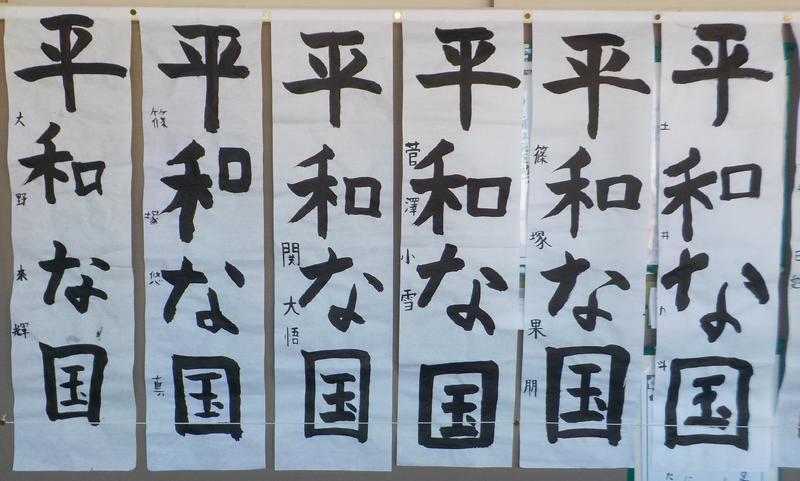 平和な国
大野来輝
平和な国
篠塚悠真
平和な国
関大悟
平和な国
菅澤小雪
平和な国
篠塚果朋
平和な国
土井力斗